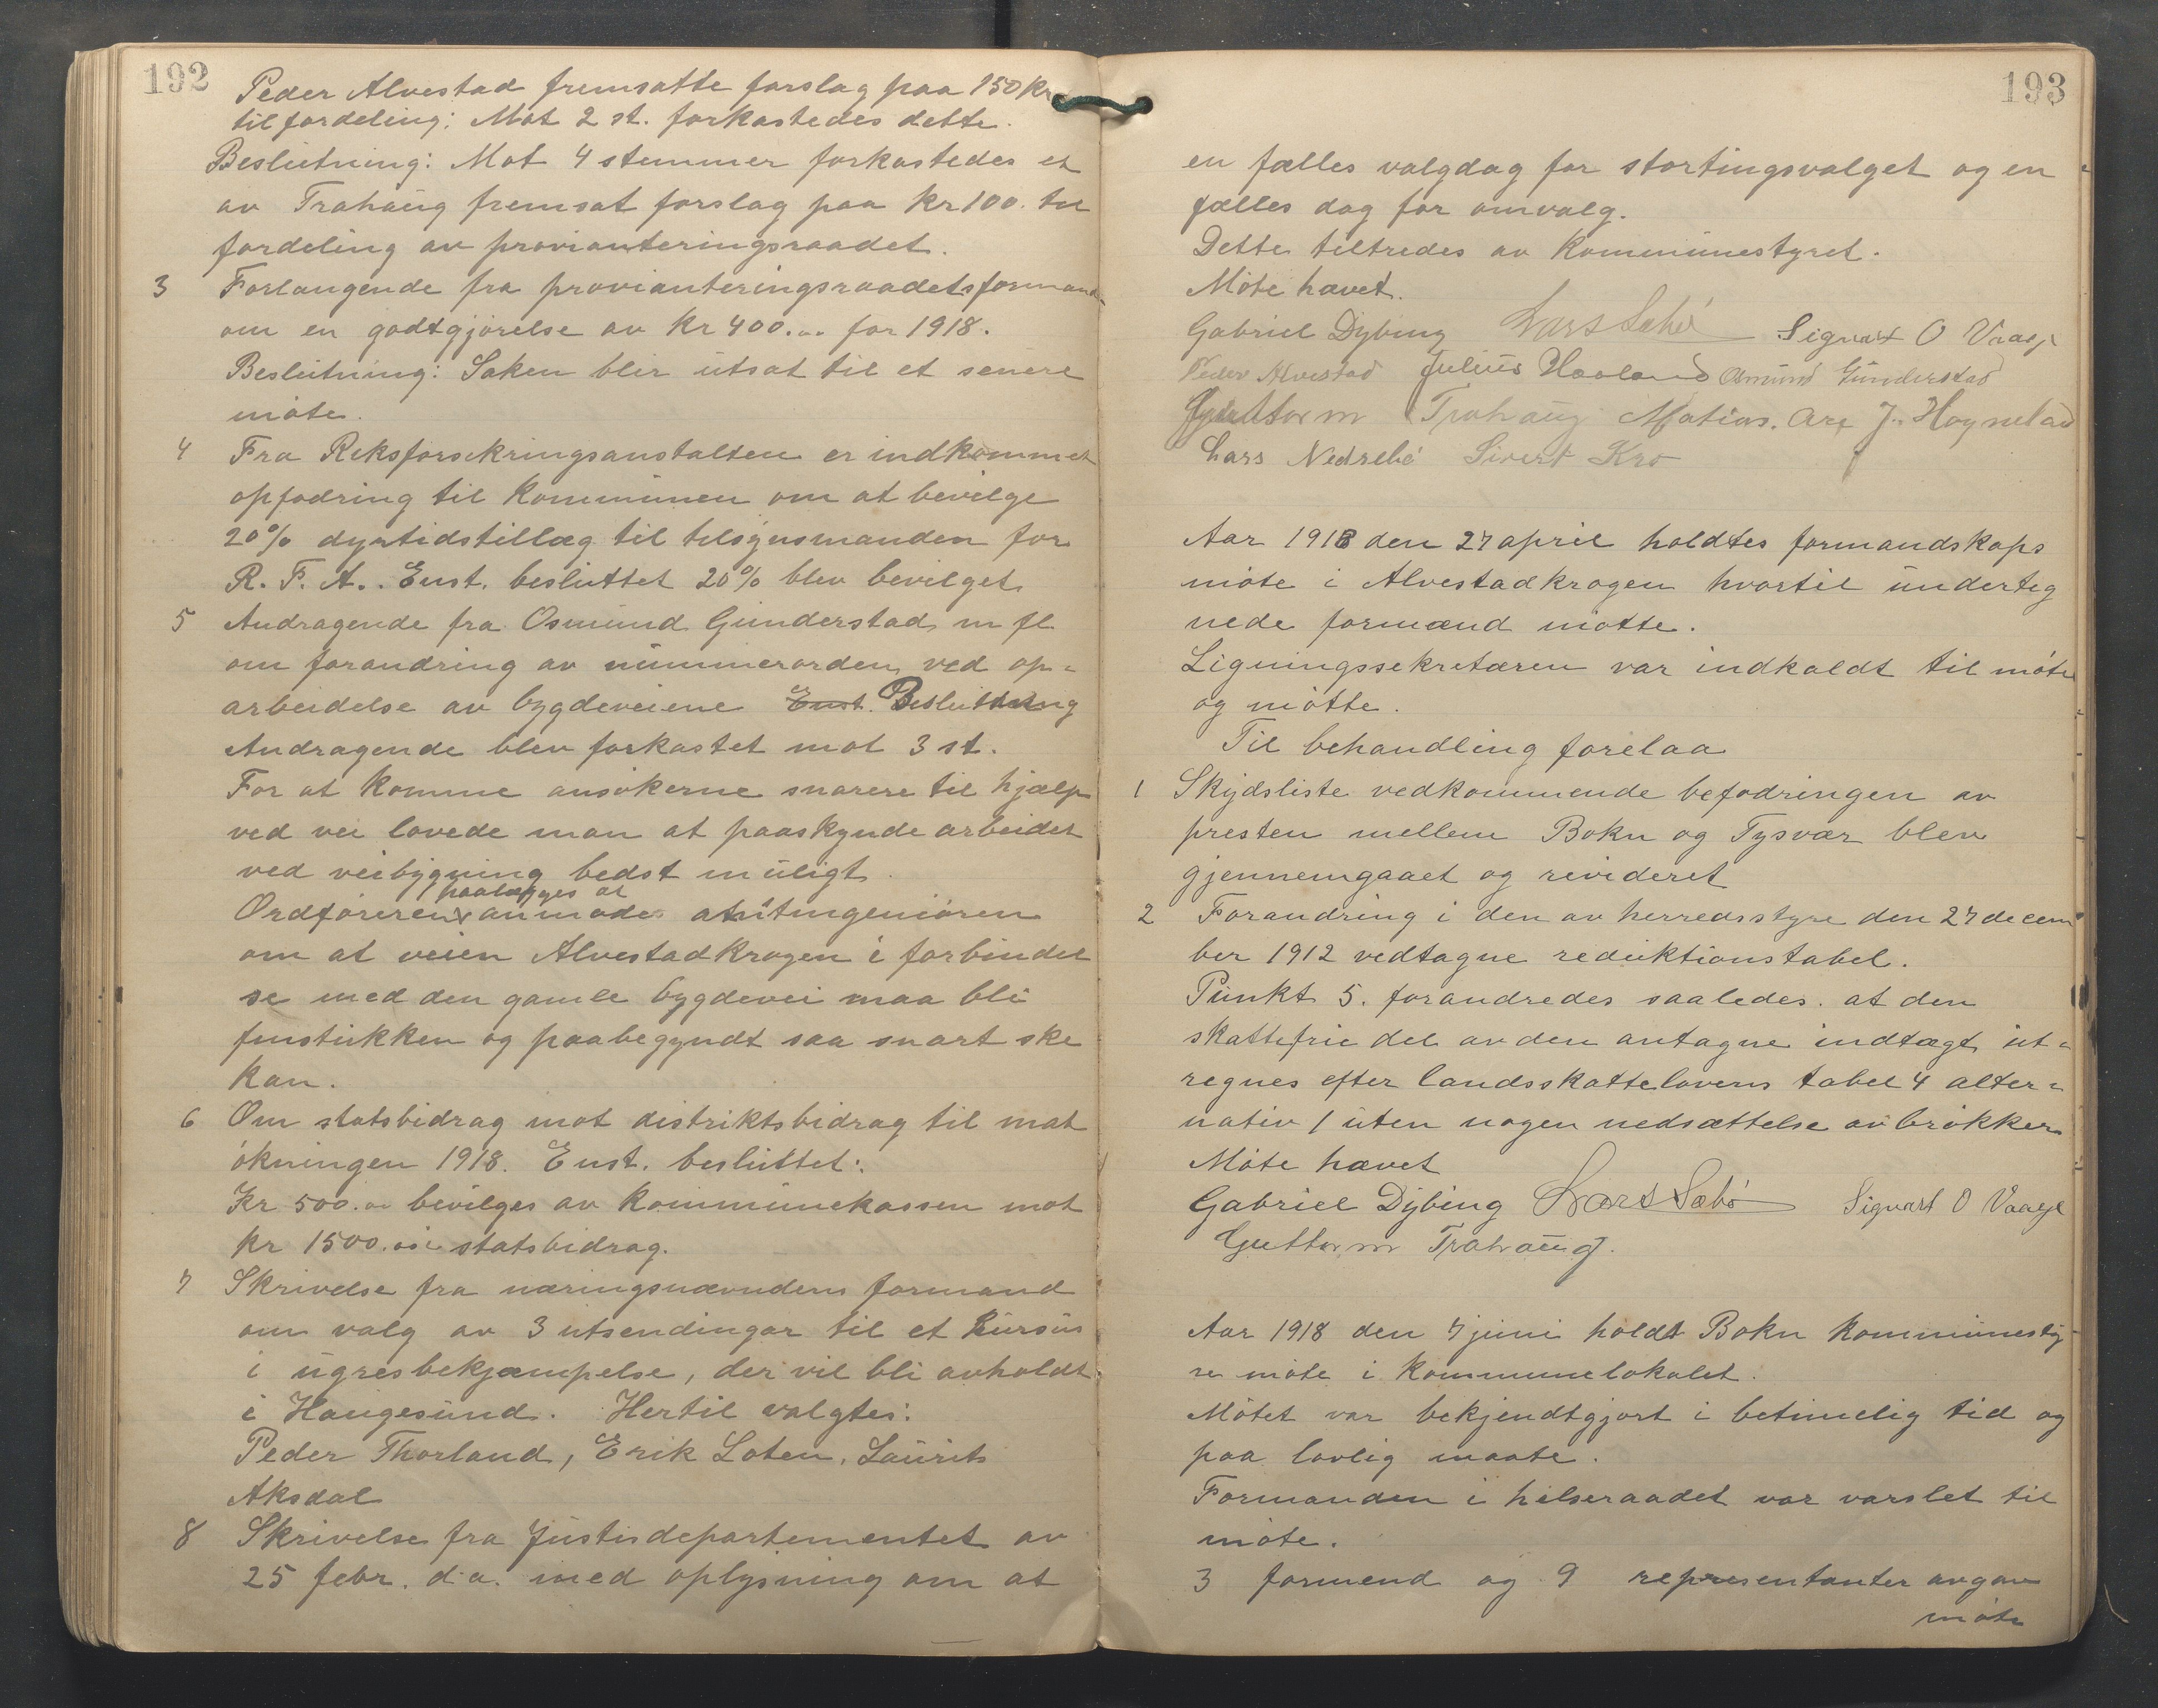 192
Peder Alvestad fremsatte forslag paa 150 kr
til fordeling. Mot 2 st. forkastedes dette.
Beslutning: Mot 4 stemmer forkastedes et
av Trahaug fremsat forslag paa kr 100. til
fordeling av provianteringsraadet.
3 Forlangende fra provianteringsraadets formand
om en godtgjörelse av kr 400.00 for 1918.
Beslutning: Saken blir utsat til et senere
möte.
4 Fra Reksforsekringsanstalten er indkommet
opfodring til kommunen om at bevilge
20% dyrtidstillæg til tilsynsmanden for
R. F. A. Enst. besluttet 20% blev bevilget
5 Andragende fra Osmund Gunderstad m fl
om forandring av nummerorden ved op-
arbeidelse av bygdeveiene Enst. Beslutning
Andragende blev forkastet mot 3 st.
For at komme ansökerne snarere til hjælp
ved vei lovede man at paaskynde arbeidet
ved veibygning bedst muligt.
paalægges at
Ordföreren anmode amtingeniören
om at veien Alvestadkrogen i forbindel
se med den gamle bygdevei maa bli
funstukken og paabegyndt saa snart ske
kan.
6 Om statsbidrag mot distriktsbidrag til mat
ökningen 1918. Enst. besluttet:
Kr 500.00 bevilges av kommunekassen mot
kr 1500.00 statsbidrag.
7 Skrivelse fra næringsnævndens formand
om valg av 3 utsendingar til et kursus
i ugresbekjæmpelse, der vil bli avholdt
i Haugesund. Hertil valgtes:
Peder Thorland, Erik Loten, Laurits
Aksdal
8 Skrivelse fra Justisdepartementet av
25 febr. d.a. med oplysning om at
193
en fælles valgdag for stortingsvalget og en
fælles dag for omvalg.
Dette tiltredes av kommunestyret.
Möte hævet.
Gabriel Dybing Lars Sæbö Sigvart O Vaage
Peder Alvestad Julius Haaland Osmund Gunderstad
Guttorm Trahaug Matias. Are J. Høyneland
Lars Nedrebö Sivert Kro
Aar 1918 den 27 april holdtes formandskaps
möte i Alvestadkrogen hvortil underteg
nede formænd mötte.
Ligningssekretæren var indkaldt til möte
og mötte.
Til behandling forelaa
1 Skydsliste vedkommende befodringen av
presten mellem Bokn og Tysvær blev
gjennemgaaet og revideret
2 Forandring i den av herredsstyre den 27 decem
ber 1912 vedtagne reduktionstabel.
Punkt 5. forandredes saaledes. at den
skattefrie del av den antagne indtægt ut-
regnes efter landsskattelovens tabel 4 alter-
nativ 1 uten nogen nedsættelse av brökker
Möte hævet
Gabriel Dybing Lars Sæbö Sigvart O Vaage
Guttorm Trahaug.
Aar 1918 den 7 juni holdt Bokn kommunesty
re möte i kommunelokalet.
Mötet var bekjendtgjort i betimelig tid og
paa lovlig maate.
Formanden i helseraadet var varslet til
möte.
3 formend og 9 representanter avgav
möte